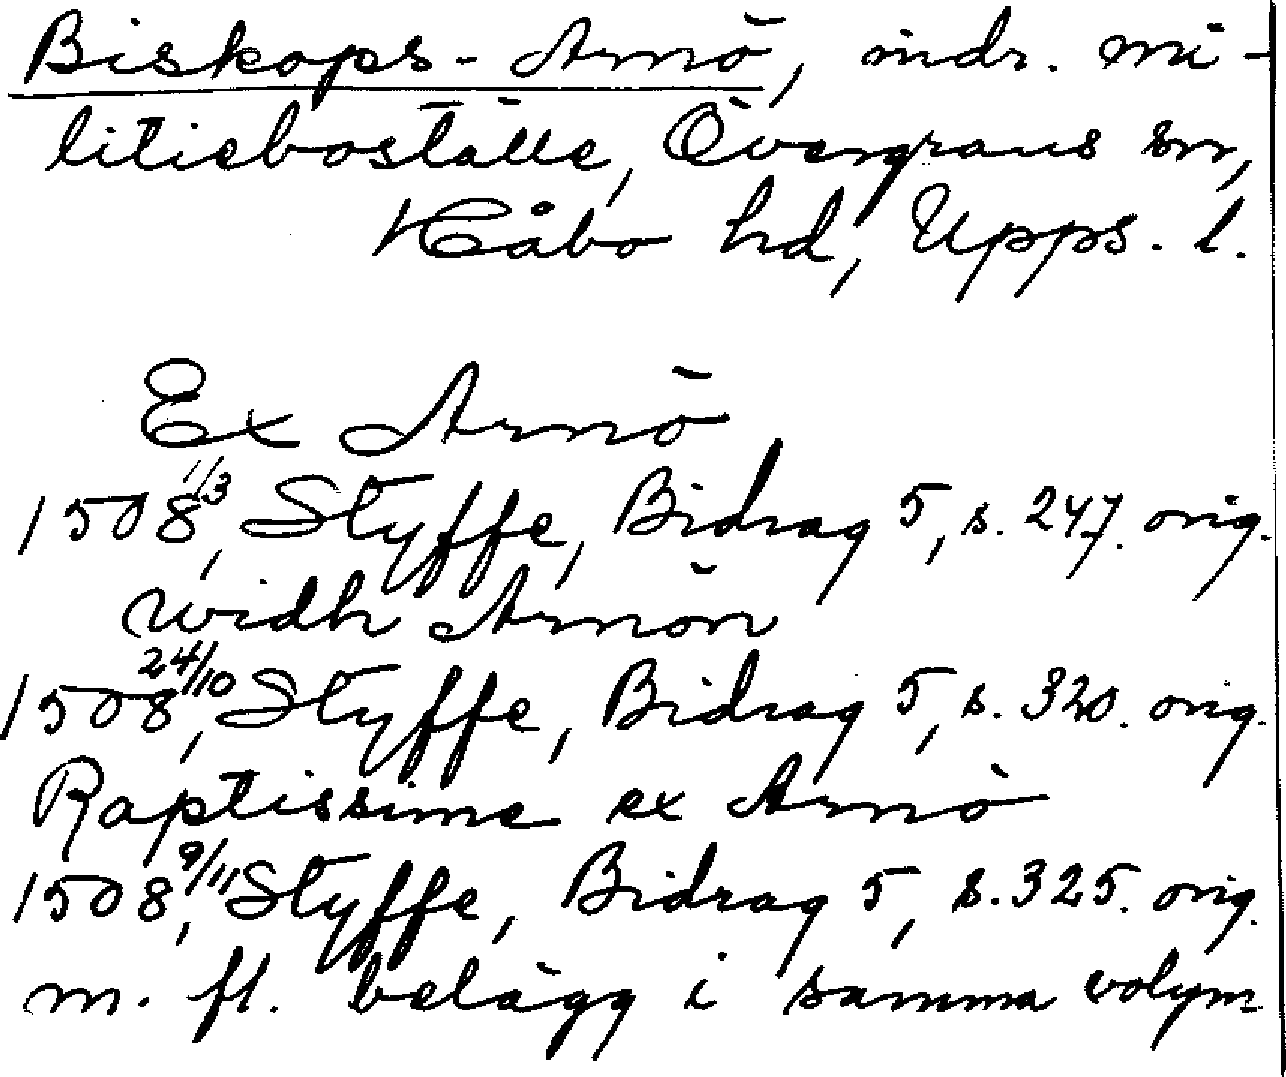 Biskops-Arnö, indr. mi-
litieboställe, Övergrans sn,
Håbo hd, Upps. l.
Ex Arnö
1508 1/3, Styffe, Bidrag 5, s. 247. orig.
widh Arnön
1508 24/10, Styffe, Bidrag 5, s. 320. orig.
Raptissime ex Arnö
1508 9/11, Styffe, Bidrag 5, s. 325. orig.
m. fl. belägg i samma volym